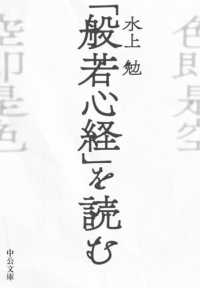 色即是空
水上 勉
「般若心経」を読む
空即是色
中公文庫